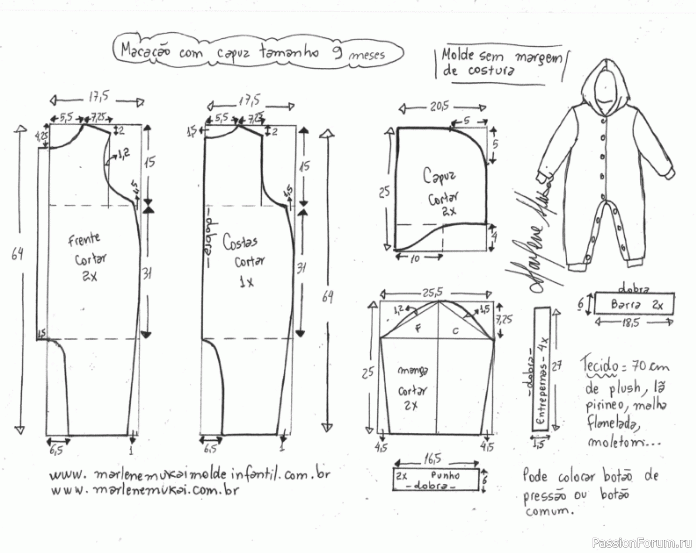 Macacão com capuz tamanho 9 meses
Molde sem margem
de costura
17,5
5,5
7,25
2
4,25
1,2
15
4,5
64
Frente
cortar
2x
31
1,5
6,5
1
17,5
5,5
7,25
2
1,5
15
4,5
-dobra-
Costas
cortar
1x
31
64
6,5
1
20,5
5
5
25
Capuz
cortar
2x
4
10
25,5
1,2
1,5
7,25
F
C
25
manga
cortar
2x
4,5
4,5
16,5
2x Punho
-dobra-
6
Marlene Mukai
dobra
6
Barra 2x
18,5
-dobra-
Entrepernas - 4x
27
1,5
Tecido = 70 cm
de plush, lã
pirineo, malha
flanelada,
moletom...
Pode colocar botão de
pressão ou botão
comum.
www.marlenemukaimoldeinfantil.com.br
www.marlenemukai.com.br
PassionForum.ru